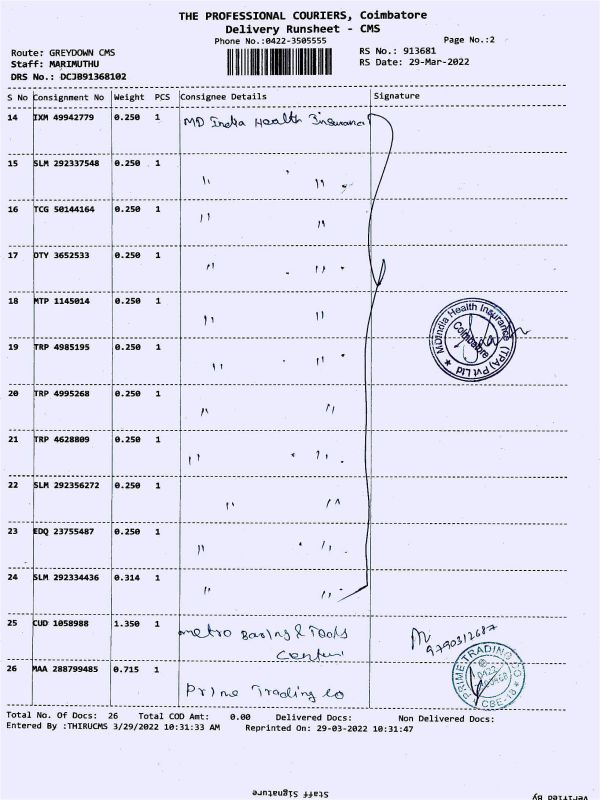 THE PROFESSIONAL COURIERS, Coimbatore
Delivery Runsheet - CMS
Phone No.:0422-3505555 Page No.:2
Route: GREYDOWN CMS RS No.: 913681
Staff: MARIMUTHU RS Date: 29-Mar-2022
DRS No.: DCJB91368102
S No Consignment No Weight PCS Consignee Details Signature
14 IXM 49942779 0.250 1 MD India Health Insurance
15 SLM 292337548 0.250 1 " "
16 TCG 50144164 0.250 1 " "
17 OTY 3652533 0.250 1 " "
18 MTP 1145014 0.250 1 " "
MDIndia Health Insurance (TPA) Pvt Ltd
Coimbatore
19 TRP 4985195 0.250 1 " "
20 TRP 4995268 0.250 1 " "
21 TRP 4628809 0.250 1 " "
22 SLM 292356272 0.250 1 " "
23 EDQ 23755487 0.250 1 " "
24 SLM 292334436 0.314 1 " "
25 CUD 1058988 1.350 1 metro Baring & Tools
9790312687
26 MAA 288799485 0.715 1 Prime Trading Co
PRIME TRADING CO
0422
CBE-18
Total No. Of Docs: 26 Total COD Amt: 0.00 Delivered Docs: Non Delivered Docs:
Entered By :THIRUCMS 3/29/2022 10:31:33 AM Reprinted On: 29-03-2022 10:31:47
Staff Signature Verified By